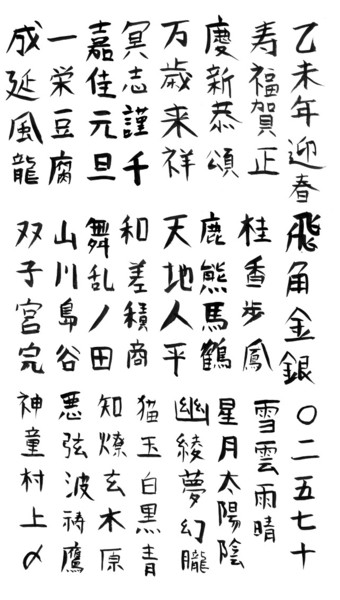 乙未年迎春
寿福賀正
慶新恭頌
万歳来祥
冥志謹千
嘉佳元旦
一栄豆腐
成延風龍
飛角金銀
桂香歩鳳
鹿熊馬鶴
天地人平
和差積商
舞乱ノ田
山川島谷
双子宮完
〇二五七十
雪雲雨晴
星月太陽陰
幽綾夢幻朧
猫玉白黒青
知燎玄木原
悪弦波祷鷹
神童村上〆